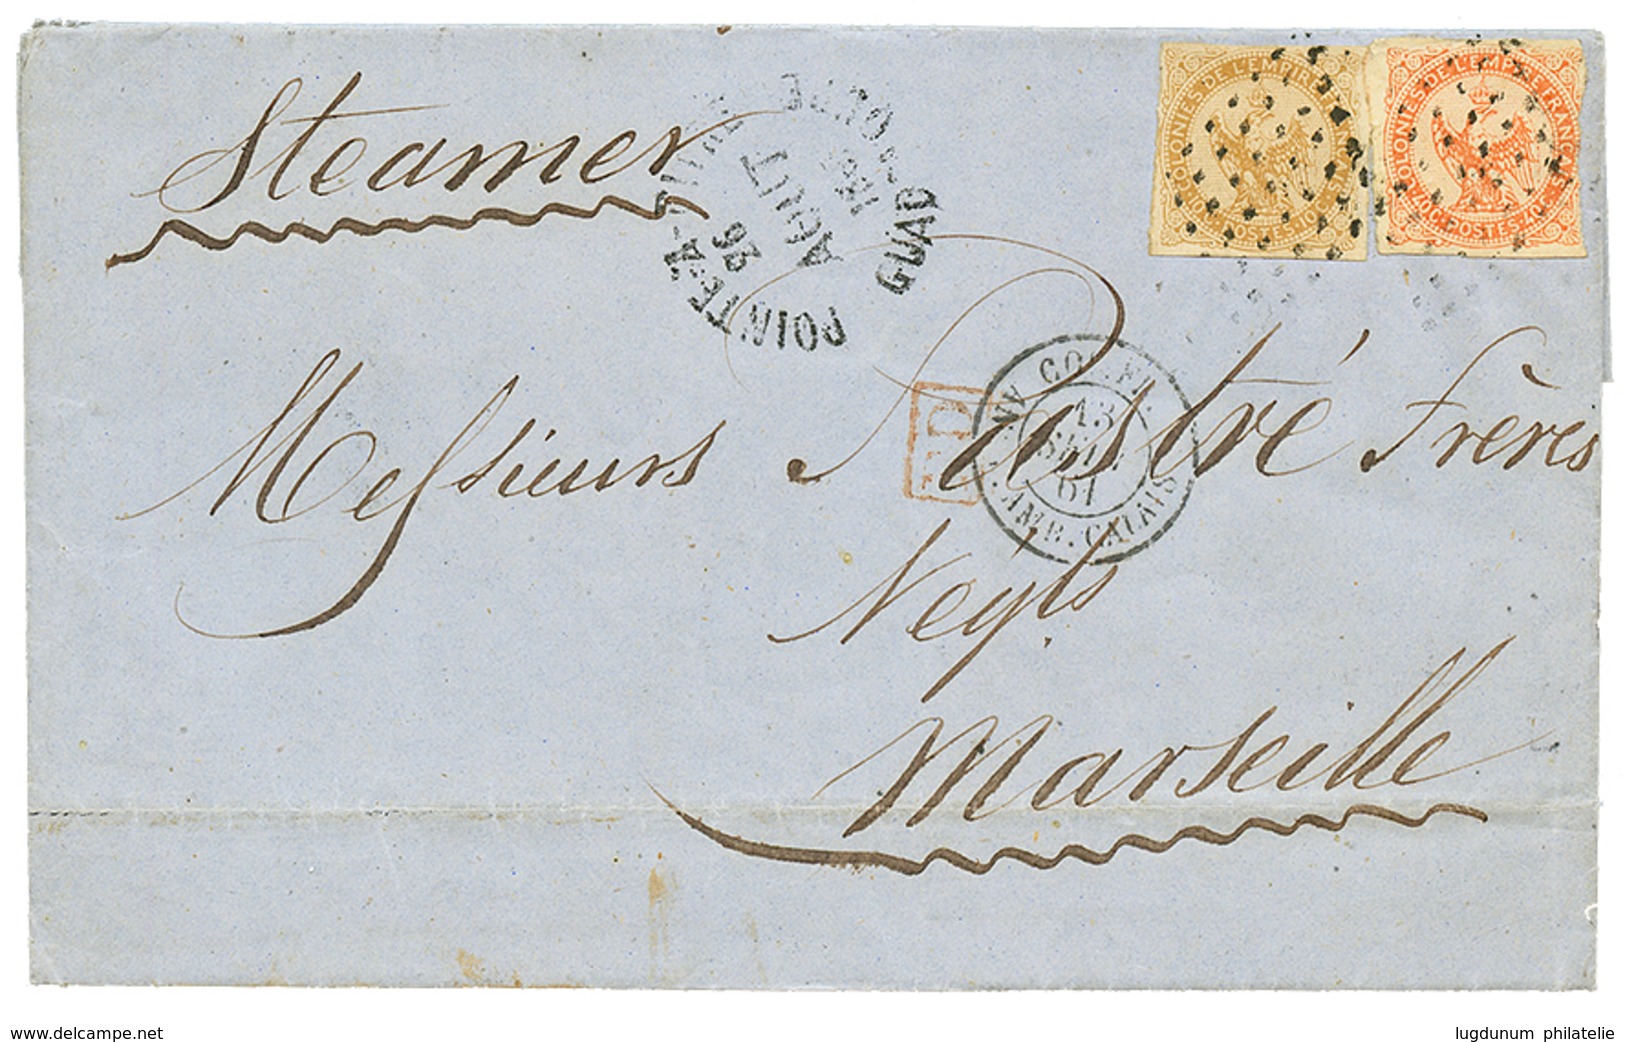 Steamer
COLONIES DE L'EMPIRE FR
10c POSTES 10
COLONIES DE L'EMPIRE FRANÇ
40c POSTES 40
POINTE-A-PITRE
26
AOUT
GUAD
PD
COL. FR.
13
SEPT.
61
AMB. CALAIS
Messieurs Pastré Frères
Négts
Marseille
www.delcampe.net
lugdunum philatelie